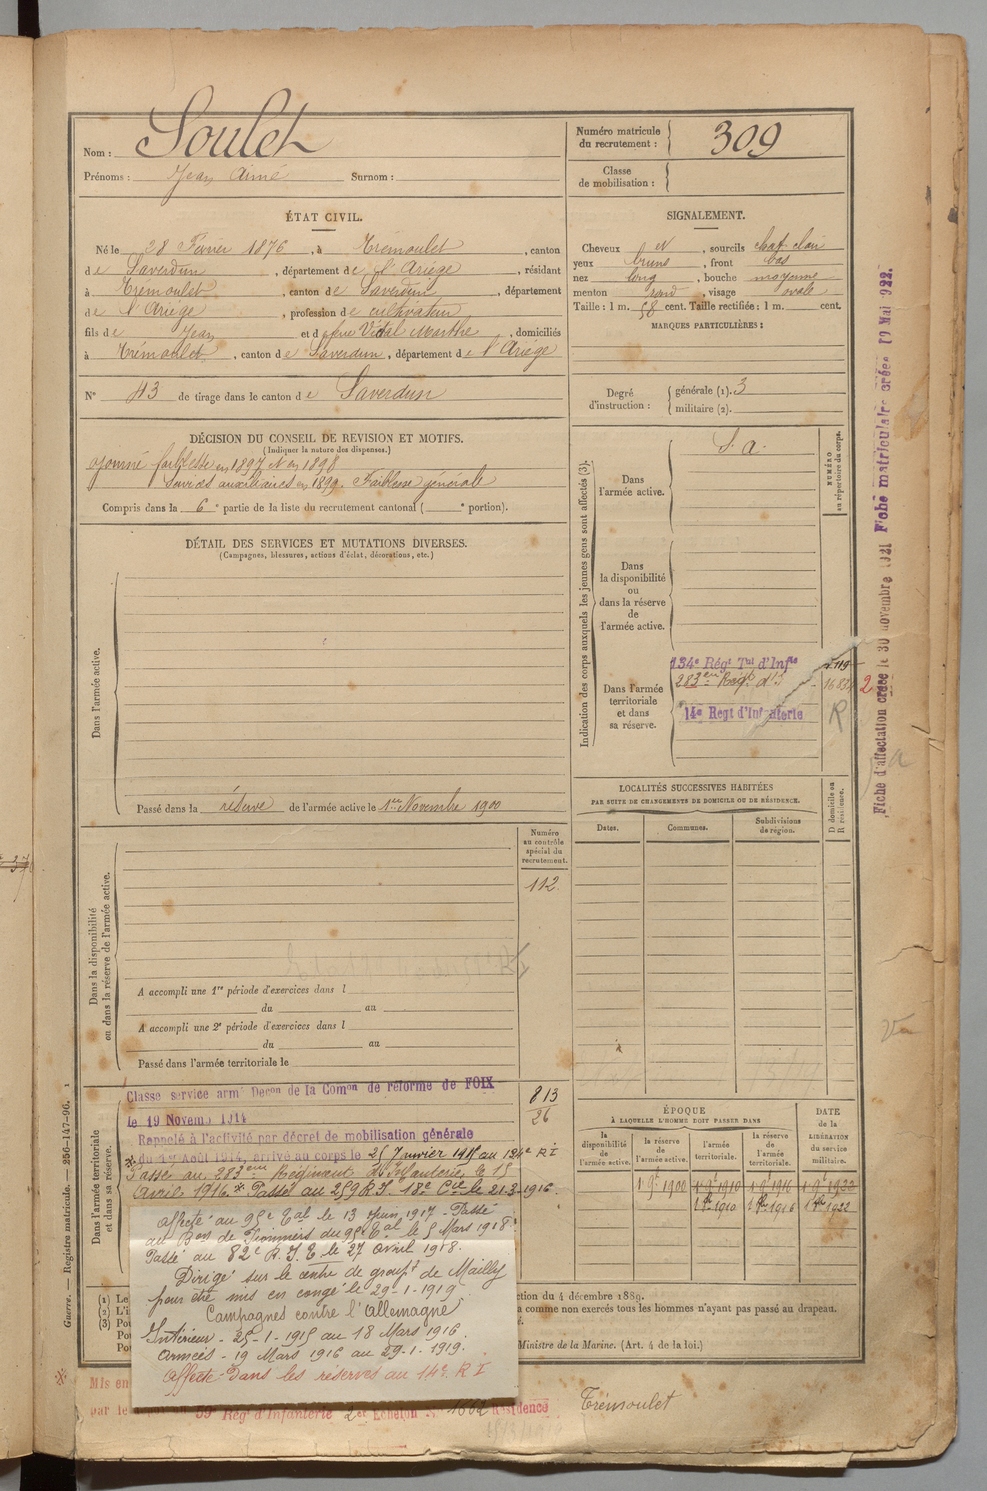 Nom : Soulet
Prénoms : Jean Aimé Surnom :
Numéro matricule du recrutement : 309
Classe de mobilisation :
ÉTAT CIVIL.
Né le 28 Février 1876, à Trémoulet, canton
de Saverdun, département de l'Ariège, résidant
à Trémoulet, canton de Saverdun, département
de l'Ariège, profession de cultivateur
fils de Jean et de feue Vidal Marthe, domiciliés
à Trémoulet, canton de Saverdun, département de l'Ariège
N° 43 de tirage dans le canton de Saverdun
SIGNALEMENT.
Cheveux et, sourcils chat. clair
yeux bruns, front bas
nez long, bouche moyenne
menton rond, visage ovale
Taille : 1 m. 58 cent. Taille rectifiée : 1 m. cent.
MARQUES PARTICULIÈRES :
Degré d'instruction :
générale (1). 3
militaire (2).
DÉCISION DU CONSEIL DE REVISION ET MOTIFS.
(Indiquer la nature des dispenses.)
ajourné faiblesse en 1897 et en 1898
Services auxiliaires en 1899. Faiblesse générale
Compris dans la 6e partie de la liste du recrutement cantonal ( e portion).
DÉTAIL DES SERVICES ET MUTATIONS DIVERSES.
(Campagnes, blessures, actions d'éclat, décorations, etc.)
Dans l'armée active.
Passé dans la réserve de l'armée active le 1er Novembre 1900
Indication des corps auxquels les jeunes gens sont affectés (3).
NUMÉRO au répertoire du corps.
Dans l'armée active.
S. a.
Dans la disponibilité ou dans la réserve de l'armée active.
Dans l'armée territoriale et dans sa réserve.
134e Régt Tal d'Infie
283eme Régt d'If
14e Regt d'Infanterie
R
LOCALITÉS SUCCESSIVES HABITÉES
PAR SUITE DE CHANGEMENTS DE DOMICILE OU DE RÉSIDENCE.
Dates. Communes. Subdivisions de région.
D domicile ou R résidence.
Numéro au contrôle spécial du recrutement.
112.
Dans la disponibilité ou dans la réserve de l'armée active.
A accompli une 1re période d'exercices dans l
du au
A accompli une 2e période d'exercices dans l
du au
Passé dans l'armée territoriale le
Dans l'armée territoriale et dans sa réserve.
Classé service armé Decon de la Comon de réforme de FOIX
le 19 Novemb 1914
813
26
Rappelé à l'activité par décret de mobilisation générale
du 1er Août 1914, arrivé au corps le 25 Janvier 1915 au 124e R I
Passé au 283eme Régiment d'Infanterie le 15
Avril 1916 * Passé au 259 R.I. 18e Cie le 21.3.1916.
Affecté au 95e Tal le 13 Juin 1917 - Passé
au Bon de Pionniers du 95e Tal le 5 Mars 1918.
Passé au 82e R.I.T. le 27 Avril 1918.
Dirigé sur le centre de groupt de Mailly
pour être mis en congé le 29-1-1919
Campagnes contre l'Allemagne
Intérieur - 25-1-1915 au 18 Mars 1916.
Armées - 19 Mars 1916 au 29-1-1919.
Affecté dans les réserves au 14e R I
ÉPOQUE
À LAQUELLE L'HOMME DOIT PASSER DANS
la disponibilité de l'armée active.
la réserve de l'armée active.
l'armée territoriale.
la réserve de l'armée territoriale.
DATE de la LIBÉRATION du service militaire.
1 9e 1900 1 9e 1910 1 9e 1916 1 9e 1922
1 8e 1910 1 8e 1916 1 8e 1922
(1) Le
(2) L'i
(3) Pou
Pou
Pou
ction du 4 décembre 1889.
a comme non exercés tous les hommes n'ayant pas passé au drapeau.
Ministre de la Marine. (Art. 4 de la loi.)
Mis en
par le 59e Rég d'Infanterie 2e Echelon N° 1662 Résidence Trémoulet
Guerre. — Registre matricule. — 256-147-96.
Fiche d'affectation créée le 30 novembre 1921 Fiche matriculaire créée 10 Mai 1922.